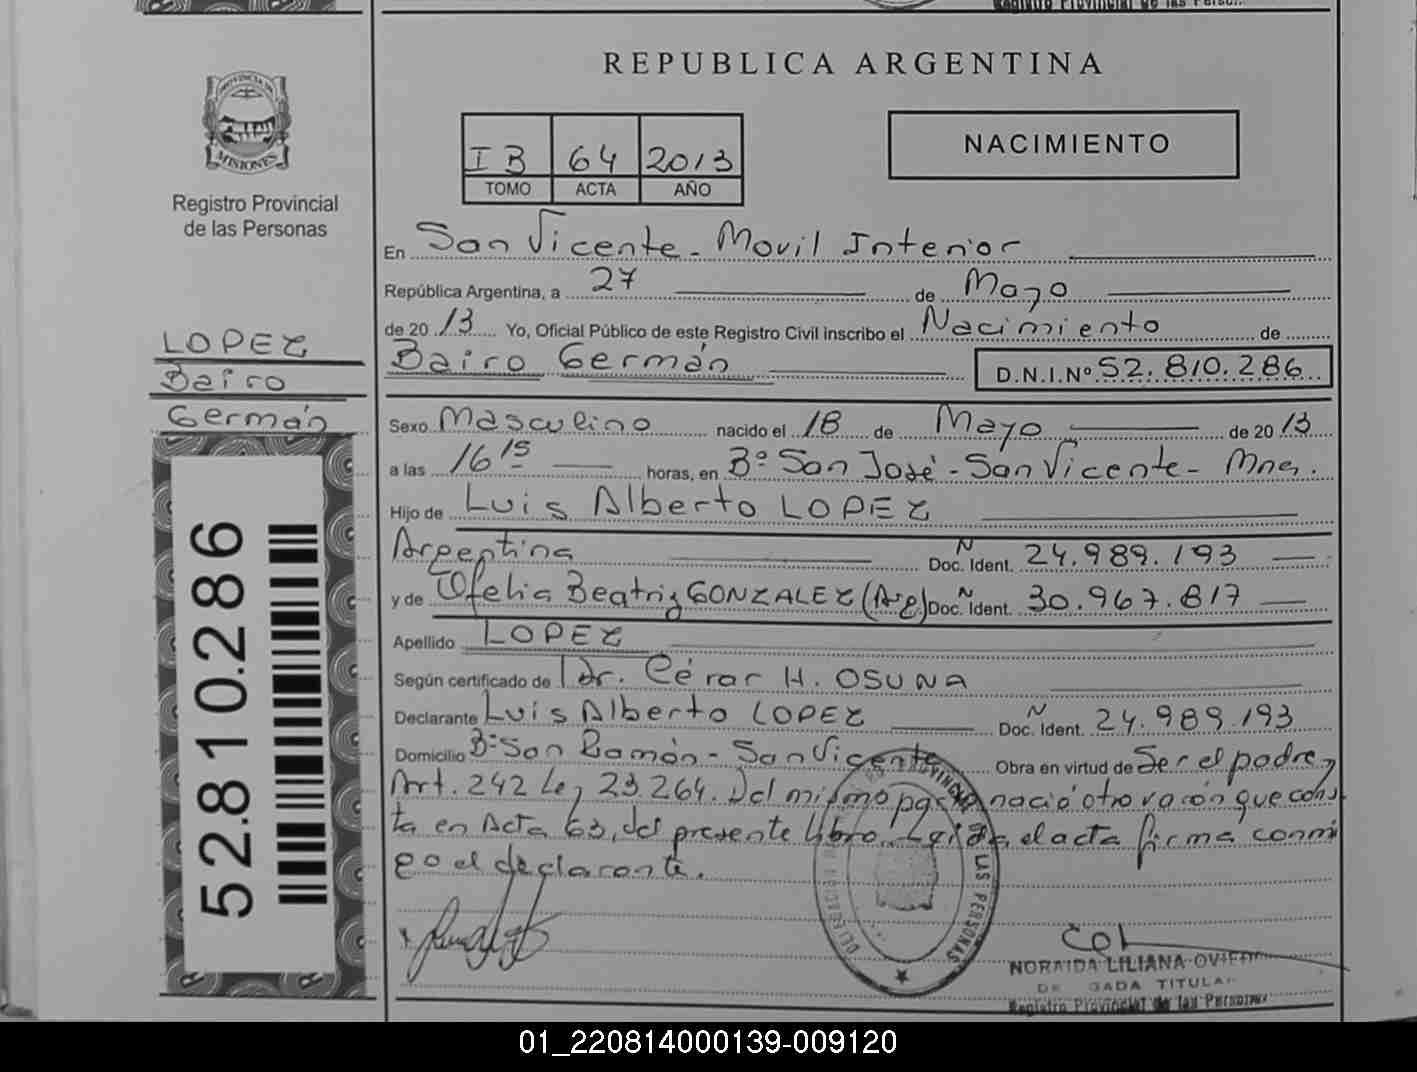 Registro Provincial de las Personas
REPUBLICA ARGENTINA
PROVINCIA DE
MISIONES
Registro Provincial
de las Personas
IB 64 2013
TOMO ACTA AÑO
NACIMIENTO
En San Vicente - Movil Interior
República Argentina, a 27 de Mayo
de 2013 Yo, Oficial Público de este Registro Civil inscribo el Nacimiento de
Bairo Germán D.N.I.Nº 52.810.286
LOPEZ
Bairo
Germán
52.810.286
Sexo Masculino nacido el 18 de Mayo de 2013
a las 16 15 horas, en Bº San José - San Vicente - Mnes.
Hijo de Luis Alberto LOPEZ
Argentina Doc. Ident. N 24.989.193
y de Ofelia Beatriz GONZALEZ (Arg) Doc. Ident. N 30.967.817
Apellido LOPEZ
Según certificado de Dr. César H. OSUNA
Declarante Luis Alberto LOPEZ Doc. Ident. N 24.989.193
Domicilio Bº San Ramón - San Vicente Obra en virtud de Ser el padre y
Art. 242 Ley 23.264. Del mismo parto nació otro varón que cons
ta en Acta 63, del presente libro. Leída el acta firma conmi
go el declarante.
PROVINCIAL DE LAS PERSONAS
NORAIDA LILIANA OVIEDO
TITULAR
Registro Provincial de las Personas
01_220814000139-009120